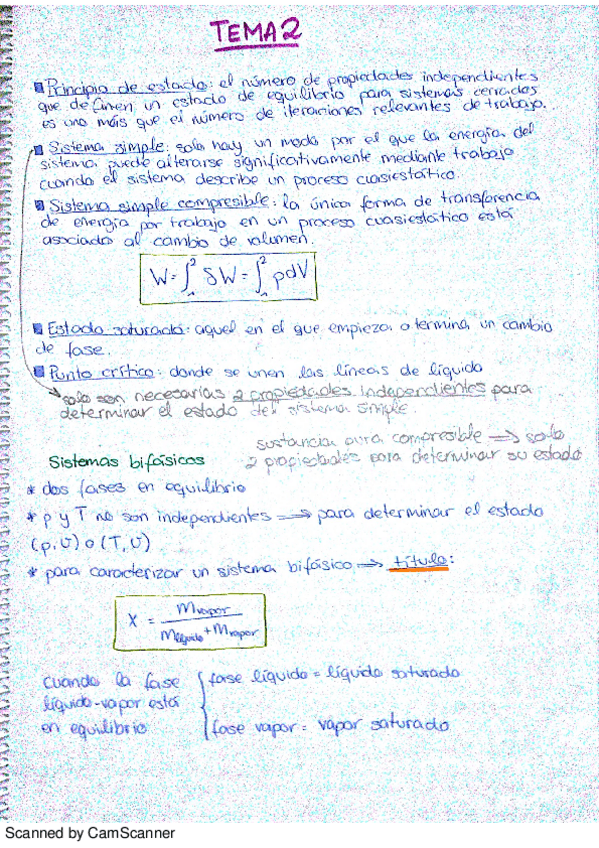 TEMA 2
Principio de estado: el número de propiedades independientes
que definen un estado de equilibrio para sistemas cerrados
es uno más que el número de iteraciones relevantes de trabajo.
Sistema simple: solo hay un modo por el que la energía del
sistema puede alterarse significativamente mediante trabajo
cuando el sistema describe un proceso cuasiestático.
Sistema simple compresible: la única forma de transferencia
de energía por trabajo en un proceso cuasiestático está
asociado al cambio de volumen.
W = ∫₁² δW = ∫₁² pdV
Estado saturado: aquel en el que empieza o termina un cambio
de fase.
Punto crítico: donde se unen las líneas de líquido
solo son necesarias 2 propiedades independientes para
determinar el estado del sistema simple.
sustancia pura compresible → solo
2 propiedades para determinar su estado
Sistemas bifásicos
* dos fases en equilibrio
* p y T no son independientes → para determinar el estado
(p, U) o (T, U)
* para caracterizar un sistema bifásico → título:
X = mvapor / mlíquido + mvapor
cuando la fase
líquido-vapor está
en equilibrio
fase líquido = líquido saturado
fase vapor = vapor saturado
Scanned by CamScanner